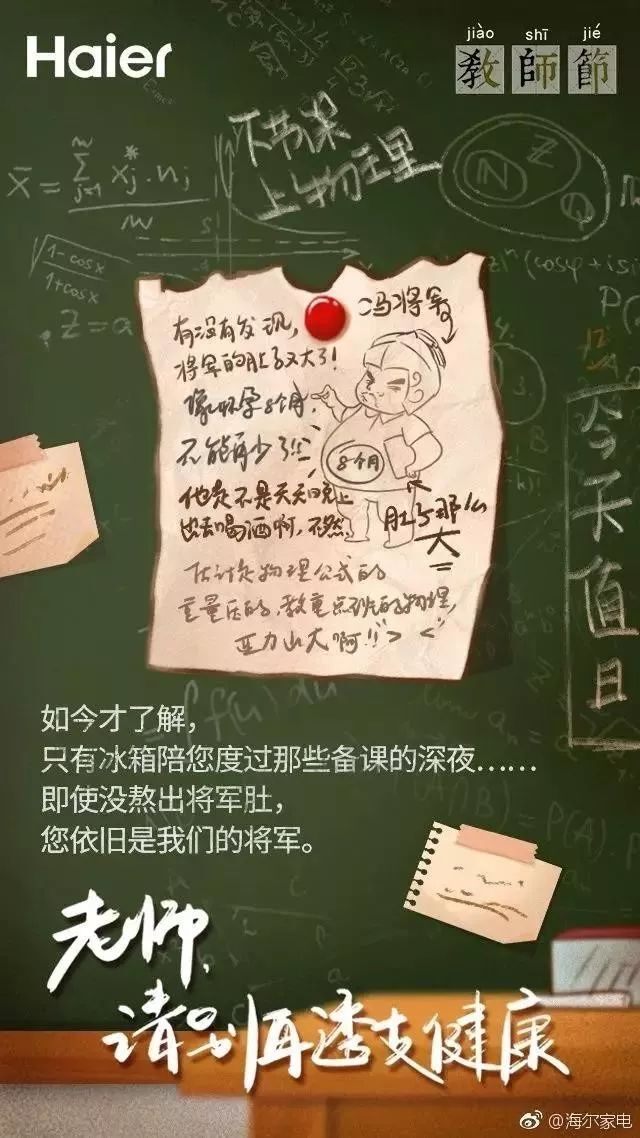 Haier
jiào shī jié
教師節
下节课
上物理
有没有发现，
将军的肚子又大了！
像怀孕8个月，
不能再少了！！
他是不是天天晚上
出去喝酒啊，不然
冯将军
8个月
肚子那么
大
估计是物理公式的
重量压的，教重点班的物理，
压力山大啊！！> <
今天值日
如今才了解，
只有冰箱陪您度过那些备课的深夜……
即使没熬出将军肚，
您依旧是我们的将军。
老师，
请别再透支健康
@海尔家电